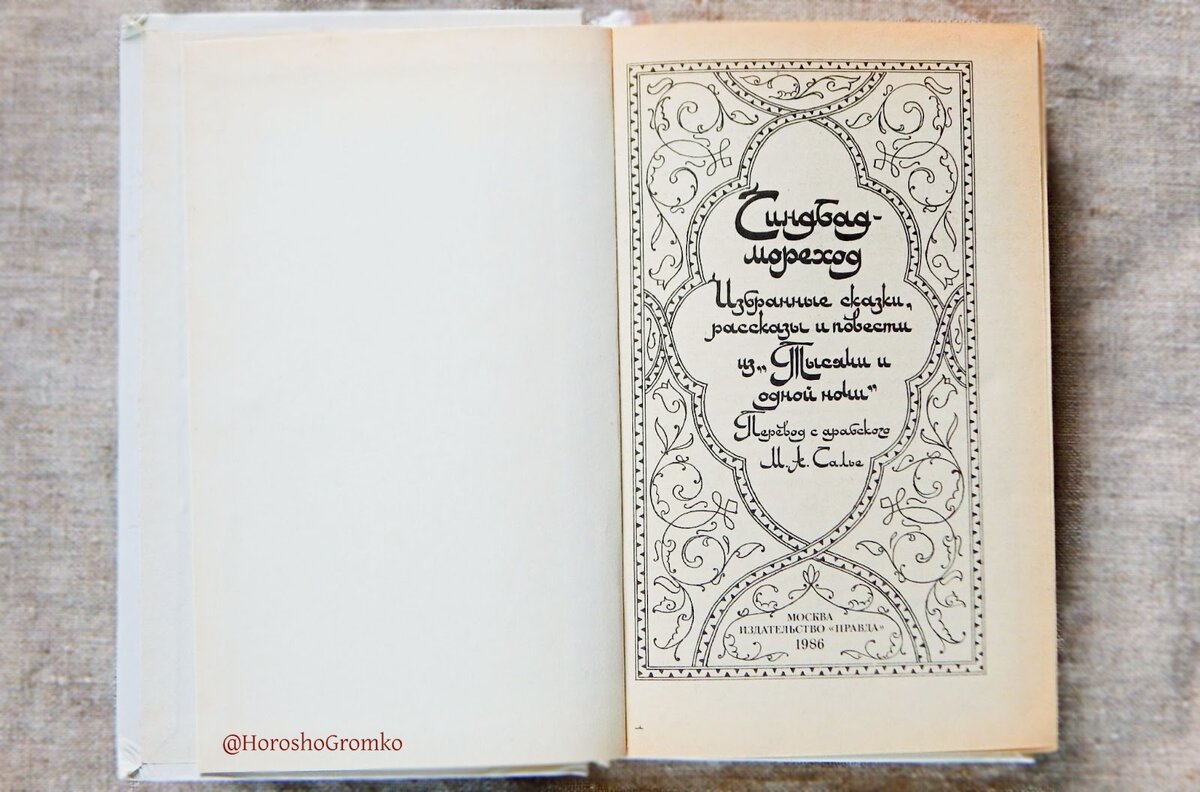 Синдбад-
мореход
Избранные сказки,
рассказы и повести
из „Тысячи и
одной ночи“
Перевод с арабского
М. А. Салье
МОСКВА
ИЗДАТЕЛЬСТВО «ПРАВДА»
1986
@HoroshoGromko